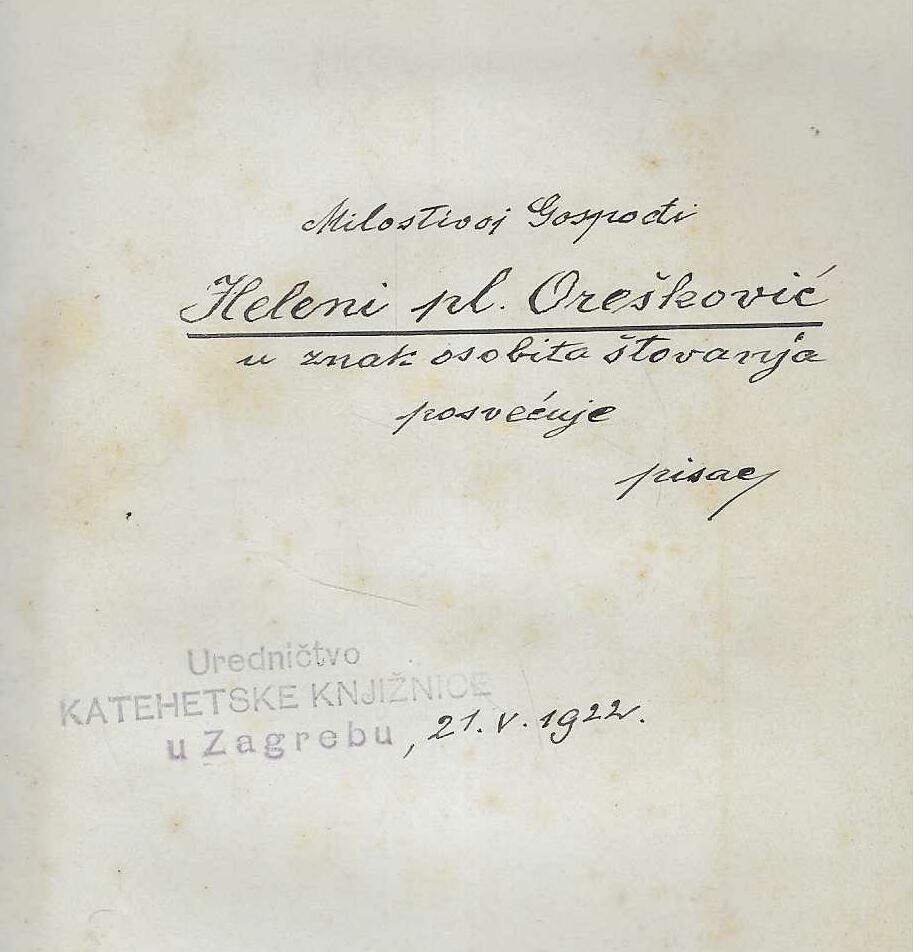 Milostivoj Gospođi
Heleni pl. Orešković
u znak osobita štovanja
posvećuje
pisac
Uredničtvo
KATEHETSKE KNJIŽNICE
u Zagrebu, 21. V. 1922.